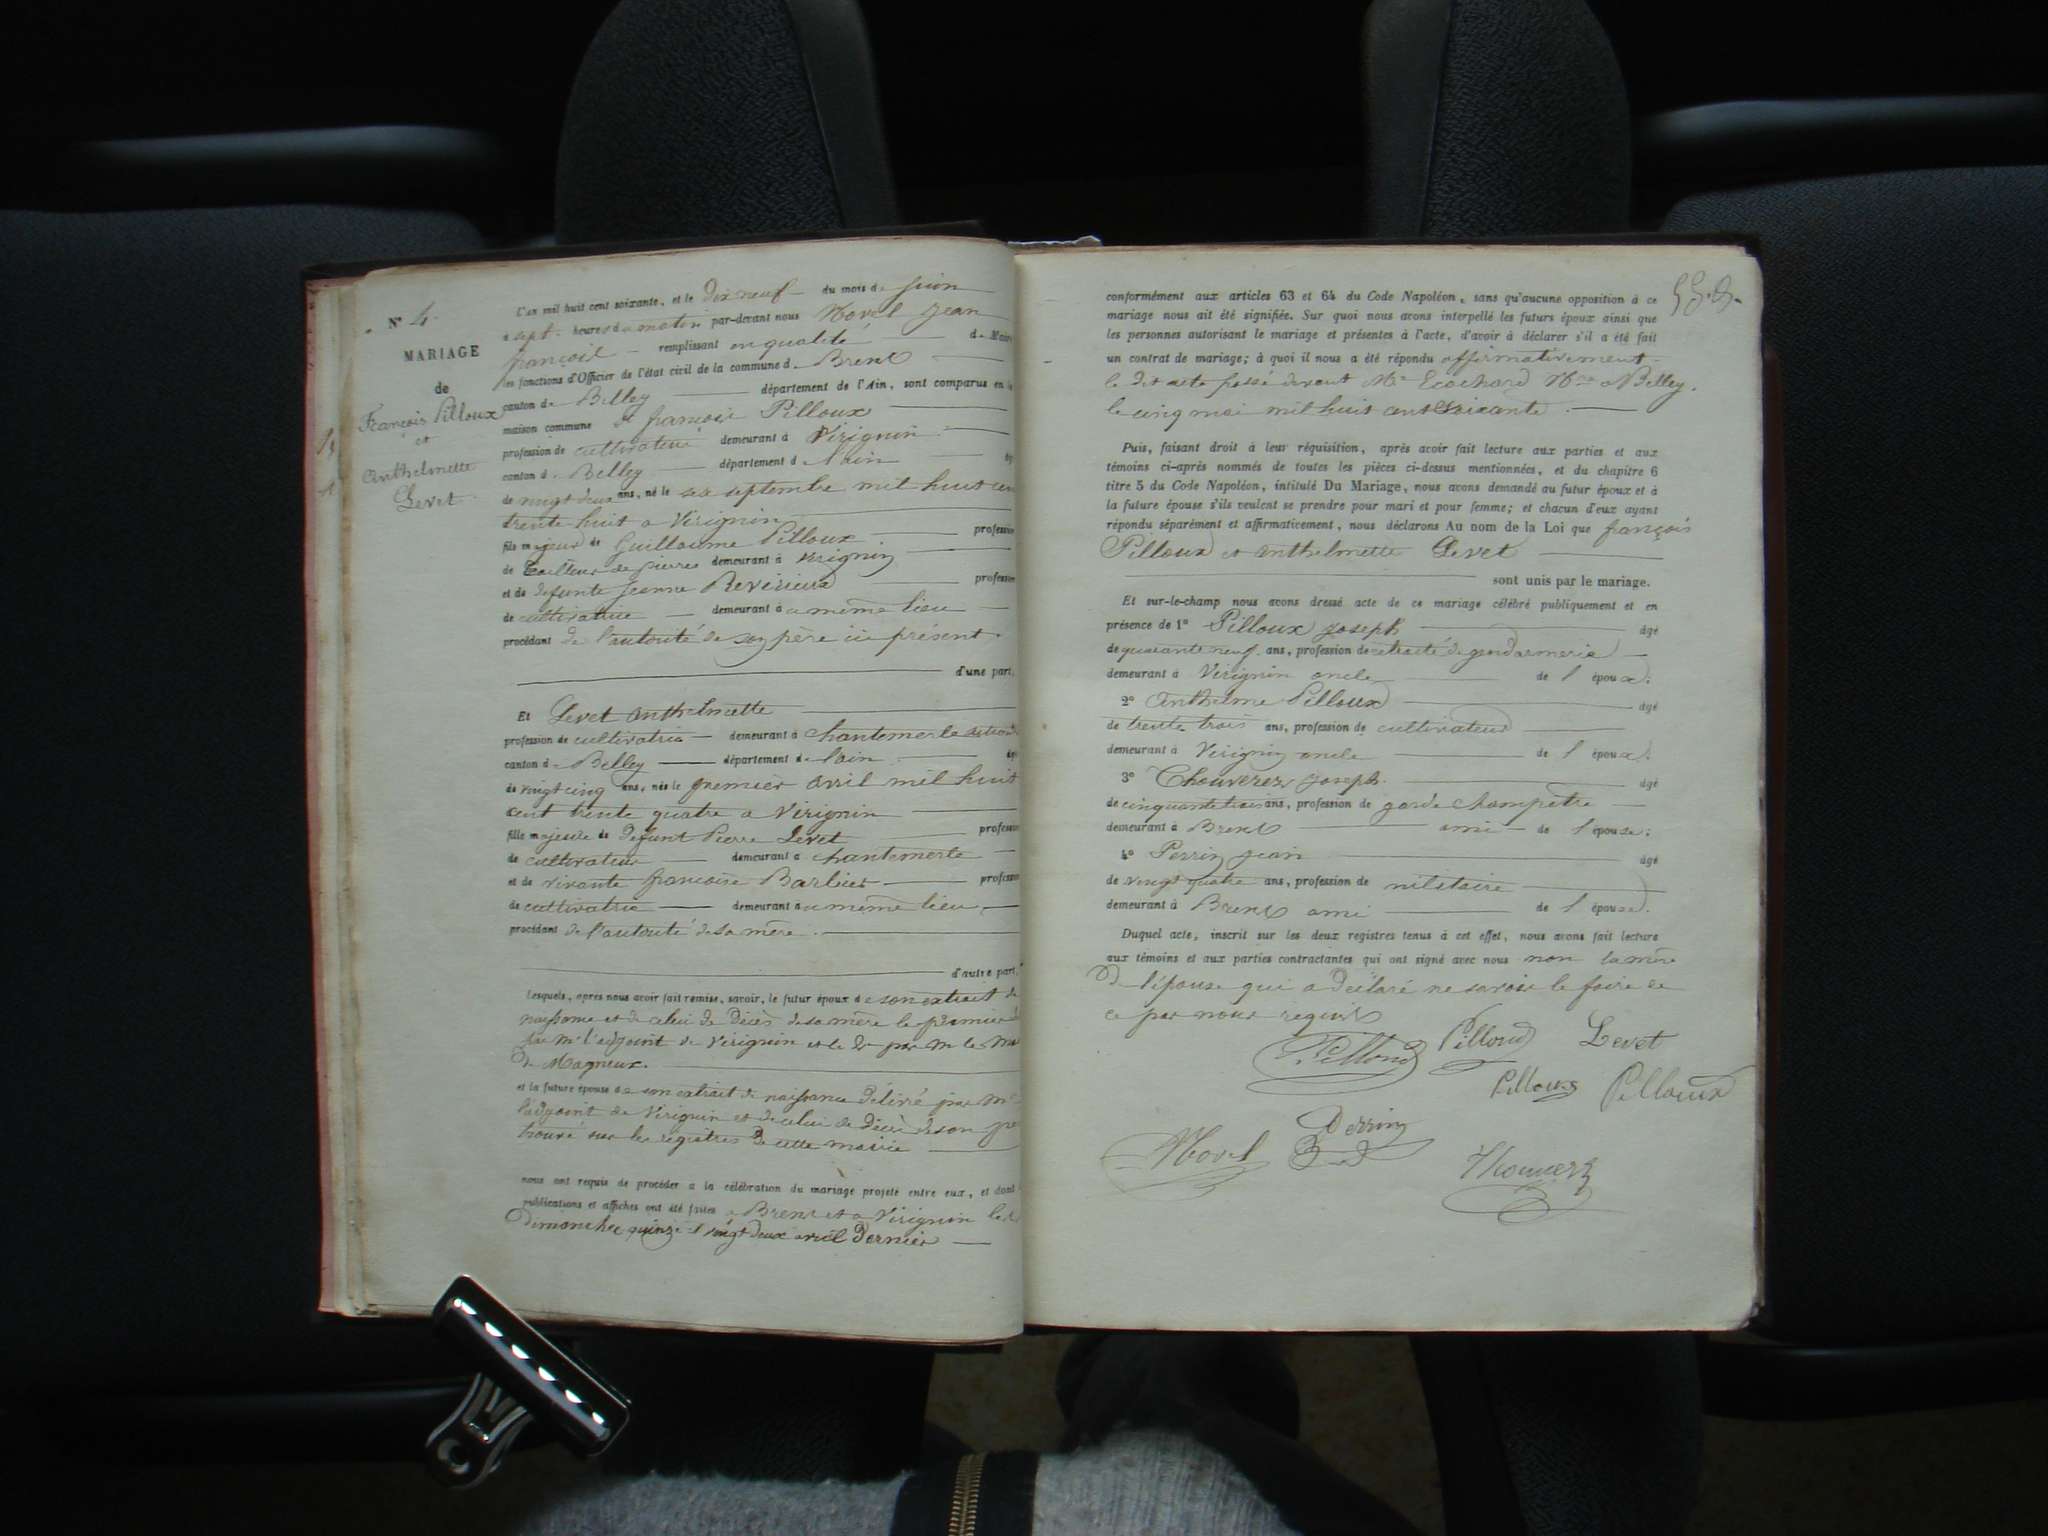 N° 4.
MARIAGE
de
François Pilloux
et
Anthelmette
Levet
L'an mil huit cent soixante, et le dix neuf du mois de juin
à sept heures du matin par-devant nous Morel Jean
françois remplissant en qualité de Maire
les fonctions d'Officier de l'état civil de la commune de Brens
canton de Belley département de l'Ain, sont comparus en la
maison commune Sr françois Pilloux
profession de cultivateur demeurant à Virignin
canton de Belley département de l'ain
de vingt deux ans, né le six septembre mil huit cent
trente huit a Virignin
fils majeur de Guillaume Pilloux profession
de tailleur de pierres demeurant à Virignin
et de defunte Jeanne Revérieux profession
de cultivatrice demeurant à u même lieu
procédant de l'autorité de son père ici présent.
d'une part,
Et Levet anthelmette
profession de cultivatrice demeurant à chantemerle
canton de Belley département de l'ain
de vingt cinq ans, née le premier avril mil huit
cent trente quatre a Virignin
fille majeure de defunt Pierre Levet profession
de cultivateur demeurant à chantemerle
et de vivante francoise Barlier profession
de cultivatrice demeurant à u même lieu
procédant de l'autorité de sa mère.
d'autre part,
Lesquels, après nous avoir fait remise, savoir, le futur époux de son extrait de
naissance et de celui de décès de sa mère le premier
par mr l'adjoint de Virignin et le 2e par m le
de Magneux.
et la future épouse de son extrait de naissance délivré par mr
l'adjoint de Virignin et de celui de décès de son père
trouvé sur les registres de cette mairie
nous ont requis de procéder à la célébration du mariage projeté entre eux, et dont
publications et affiches ont été faites a Brens et a Virignin les
dimanches quinze et vingt deux avril dernier
conformément aux articles 63 et 64 du Code Napoléon, sans qu'aucune opposition à ce
mariage nous ait été signifiée. Sur quoi nous avons interpellé les futurs époux ainsi que
les personnes autorisant le mariage et présentes à l'acte, d'avoir à déclarer s'il a été fait
un contrat de mariage; à quoi il nous a été répondu affirmativement
le dit acte passé devant Me Ecochard Nre a Belley.
le cinq mai mil huit cent soixante.
Puis, faisant droit à leur réquisition, après avoir fait lecture aux parties et aux
témoins ci-après nommés de toutes les pièces ci-dessus mentionnées, et du chapitre 6
titre 5 du Code Napoléon, intitulé Du Mariage, nous avons demandé au futur époux et à
la future épouse s'ils veulent se prendre pour mari et pour femme; et chacun d'eux ayant
répondu séparément et affirmativement, nous déclarons Au nom de la Loi que françois
Pilloux et anthelmette Levet
sont unis par le mariage.
Et sur-le-champ nous avons dressé acte de ce mariage célébré publiquement et en
présence de 1° Pilloux Joseph âgé
de quarante neuf ans, profession de retraité de gendarmerie
demeurant à Virignin oncle de l'époux.
2° Anthelme Pilloux âgé
de trente trois ans, profession de cultivateur
demeurant à Virignin oncle de l'époux.
3° Thouverez Joseph. âgé
de cinquante trois ans, profession de garde champêtre
demeurant à Brens ami de l'épouse.
4° Perrin Jean âgé
de vingt quatre ans, profession de militaire
demeurant à Brens ami de l'épouse.
Duquel acte, inscrit sur les deux registres tenus à cet effet, nous avons fait lecture
aux témoins et aux parties contractantes qui ont signé avec nous non la mère
de l'épouse qui a déclaré ne savoir le faire de
ce par nous requis
Pilloux Pilloux Levet
Pilloux Pilloux
Perrin
Morel Thouverez